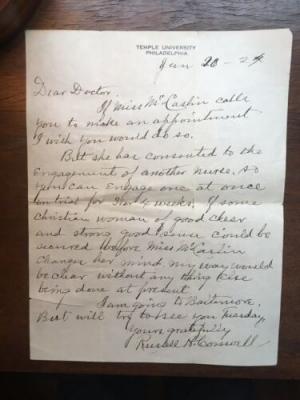 TEMPLE UNIVERSITY
PHILADELPHIA
Jan 20 - 24
Dear Doctor.
If Miss McCaslin calls
you to make an appointment
I wish you would do so.
But she has consented to the
engagement of another nurse. so
you can engage one at once
on trial for weeks. If some
christian woman of good cheer
and strong good sense could be
secured before Miss McCaslin
changes her mind, my way would
be clear without any thing else
being done at present.
I am going to Baltimore.
But will try to see you Tuesday,
Yours gratefully
Russell H Conwell